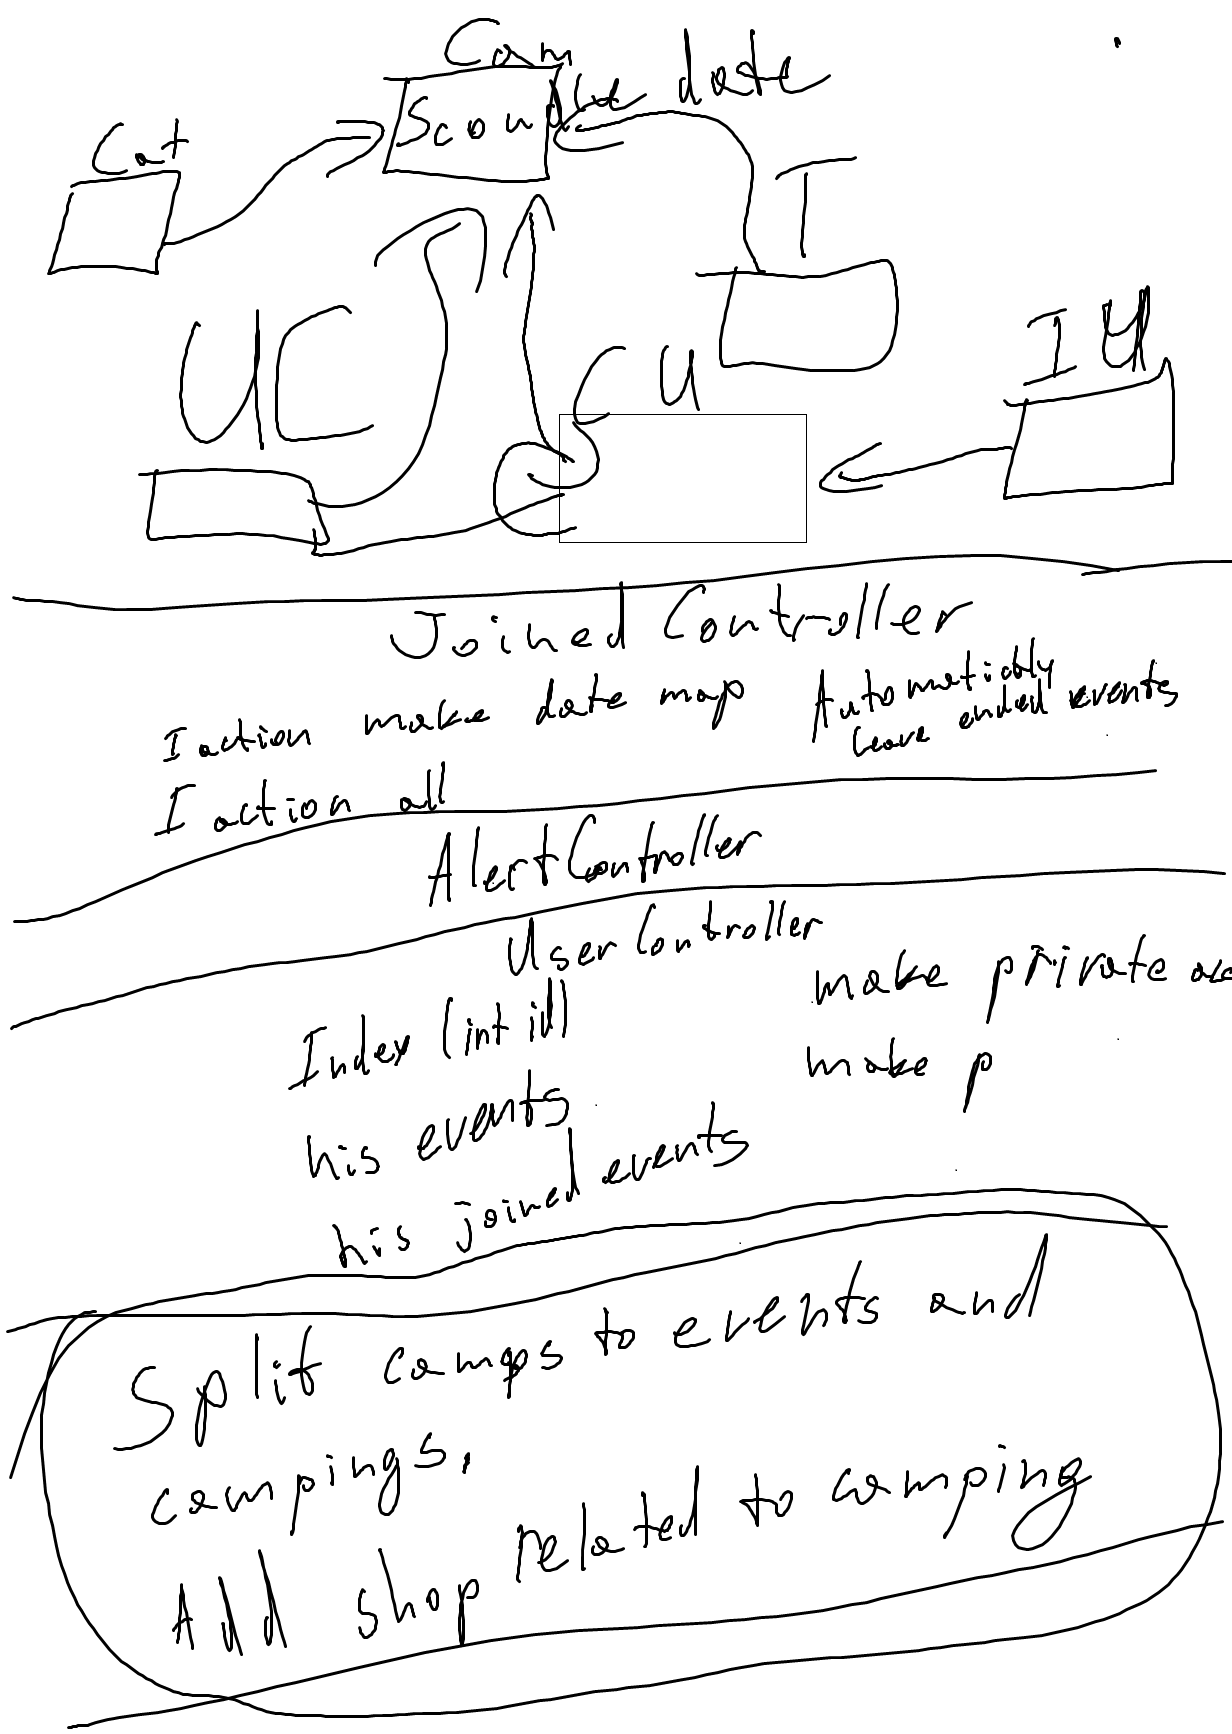 Cam
date
Cat
T
UC
CU
IU
Joined Controller
I action make date map
Automaticbly
leave ended events
I action all
AlertController
UserController
Index (int id)
make private
his events
make p
his joined events
Split camps to events and
campings.
Add shop related to camping